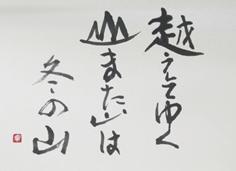 越えてゆく
山また山は
冬の山